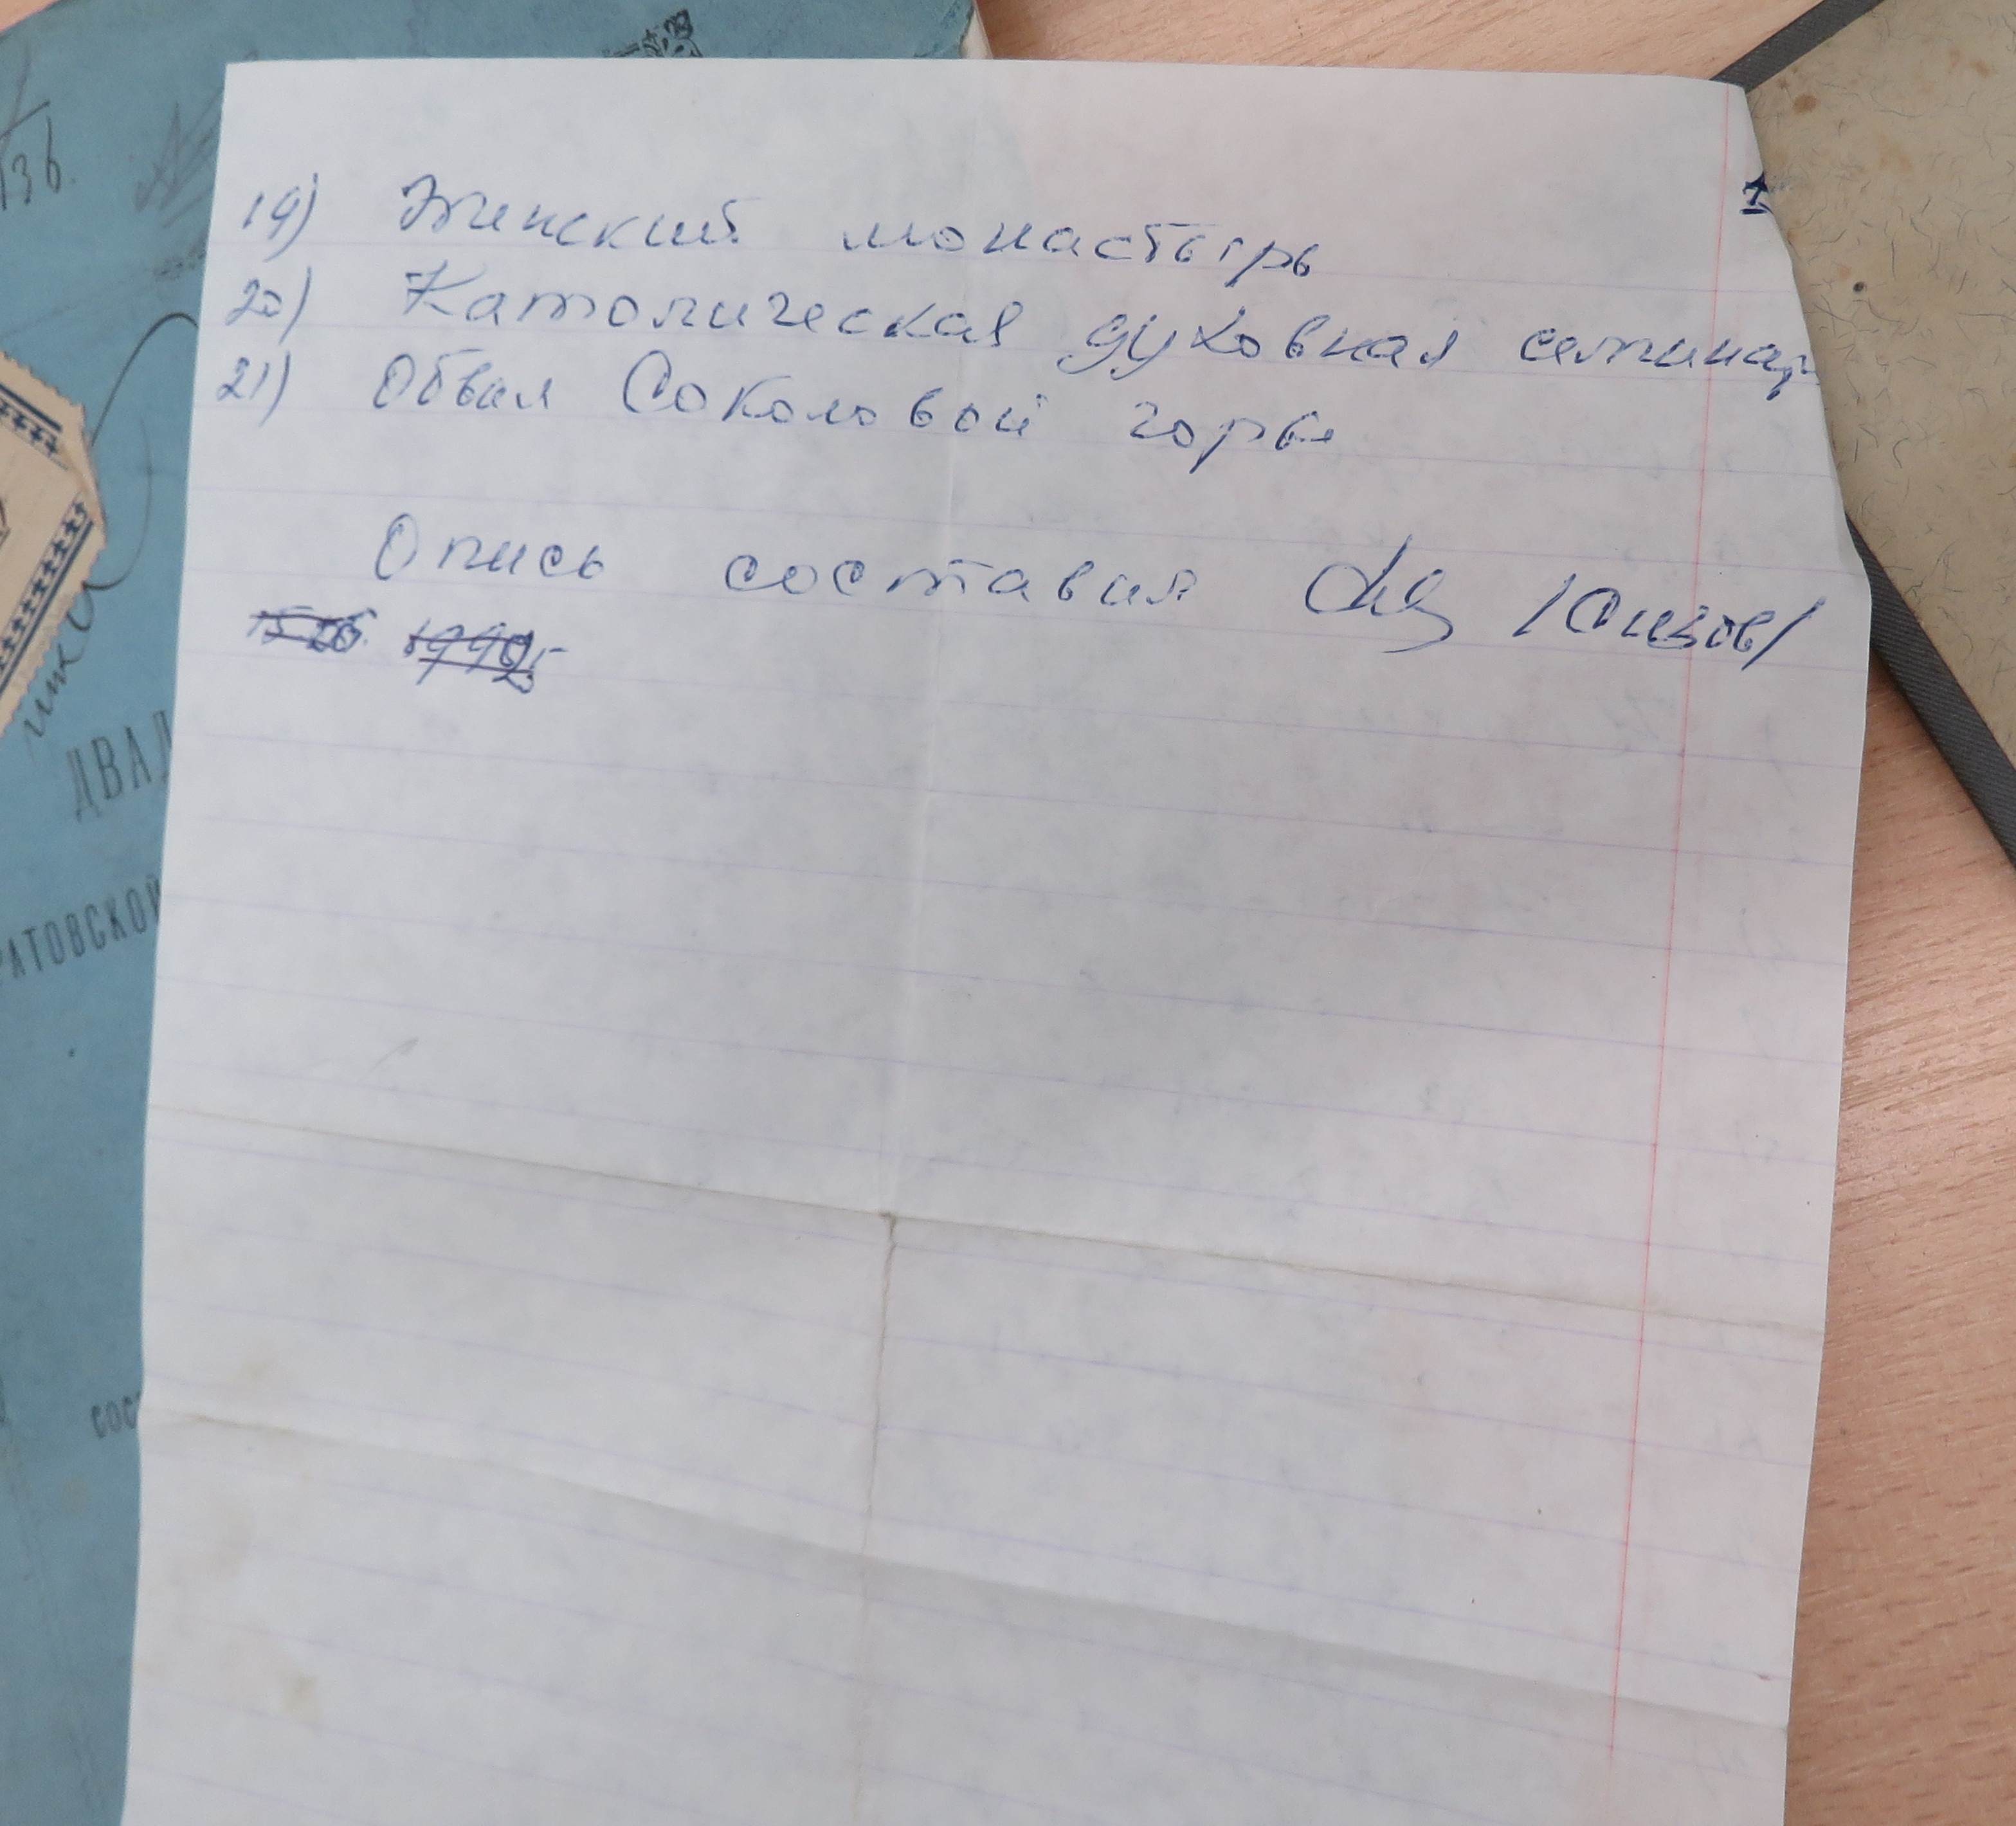 19) Женский монастырь
20) Католическая духовная семинар
21) Обвал Соколовой горы
Опись составил /Сизов/
136.
ДВАД
РАТОВСКОЙ
СОС